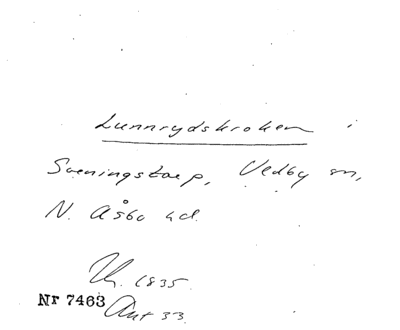 Lunnrydskroken i
Sveningstorp, Vedby sn,
N. Åsbo hd.
1835
Nr 7463 Ant 33